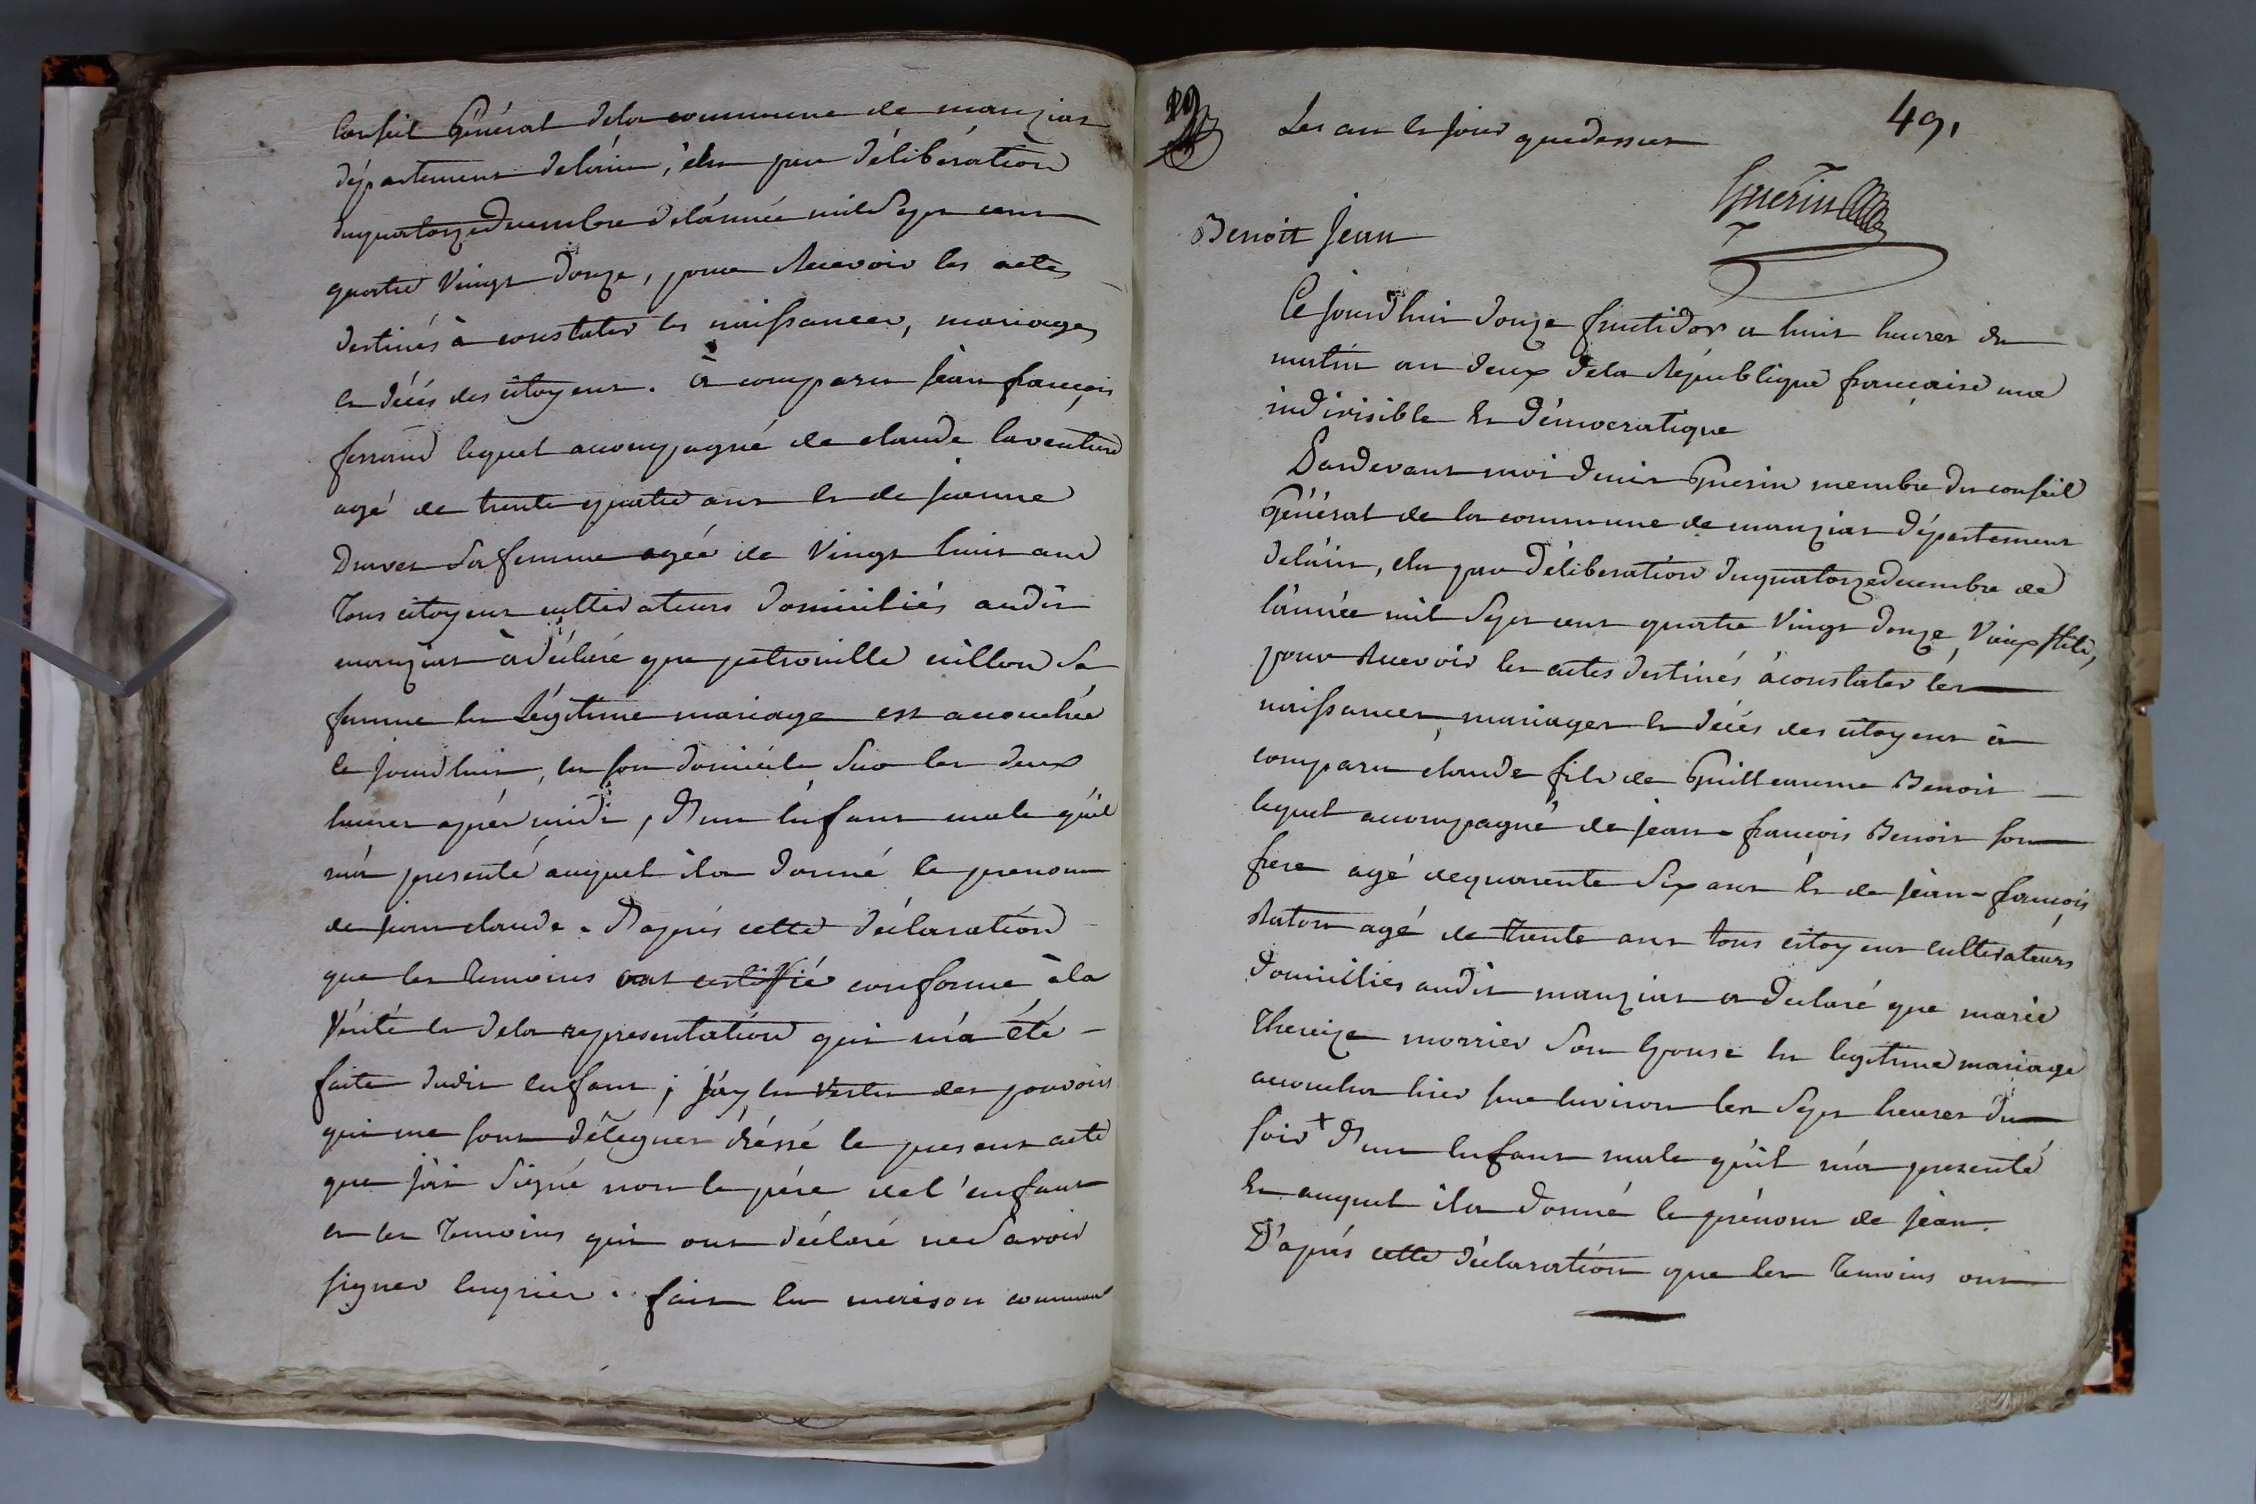 Conseil Général dela commune de manziat
département delain, élu par délibération
duquatorze decembre delánnée mil Sept cent
quatre Vingt douze, pour Recevoir les actes
destinés à constater les naissances, mariages
et décès des citoyens. à comparu jean françois
ferrand lequel accompagné de claude laventure
agé de trente quatre ans et de jeanne
Druvet Sa femme agée de Vingt huit ans
Tous citoyens cultivateurs domiciliés audit
manziat à déclaré que petronille
femme en Légitime mariage est accouchée
ce jourdhui, en son domicile Sur les deux
heures aprés midi, D'un Enfant male qu'il
m'a presenté auquel il a donné le prenom
de jean claude. D'aprés cette déclaration
que les Temoins ont certifié conforme à la
Vérité et dela representation qui m'a été
faite dudit enfant; j'ay en Vertu des pouvoirs
qui me sont délegués dréssé le present acte
que j'ai Signé non le pére de l'enfant
et les Temoins qui ont déclaré ne Savoir
signer Enquis. fait en maison commune
29
491
Les an et jour que dessus
Guerin
Benoit Jean
Ce jourd'hui douze fructidor a huit heures du
matin an deux dela République française une
indivisible Et Démocratique
Pardevant moi denis Guerin membre du conseil
Général de la commune de manziat département
delàin, élu par Déliberation duquatorze decembre de
lánnée mil Sept cent quatre Vingt douze, Vieux stile,
pour Recevoir les actes destinés à constater les
naissances, mariages et décès des citoyens à
comparu claude fils de Guillaume Benoit
lequel accompagné de jean-francois Benoit son
frere agé de quarante Six ans et de jean-françois
Raton agé de trente ans tous citoyens cultivateurs
domicilies audit manziat a declaré que marie
Thereize morrier Son Epouse En legitime mariage
accoucha hier sur Environ les Sept heures du
soir + D'un Enfant male qu'il m'a presenté
Et auquel il a donné le prénom de jean.
D'aprés cette déclaration que les Temoins ont